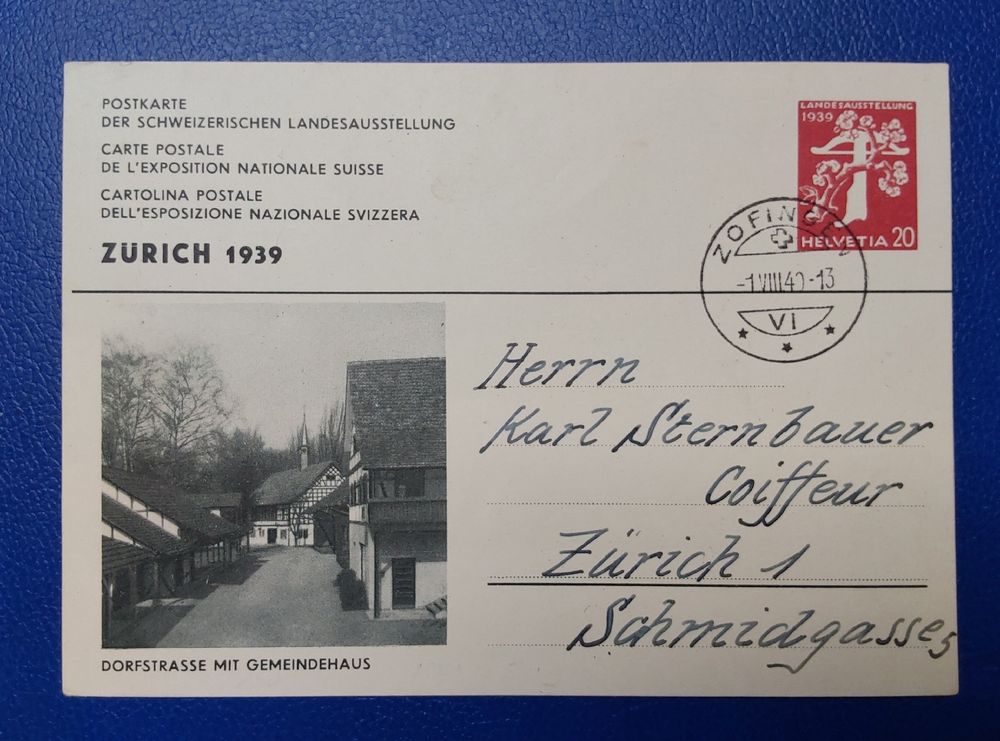 POSTKARTE
DER SCHWEIZERISCHEN LANDESAUSSTELLUNG
CARTE POSTALE
DE L'EXPOSITION NATIONALE SUISSE
CARTOLINA POSTALE
DELL'ESPOSIZIONE NAZIONALE SVIZZERA
ZÜRICH 1939
LANDESAUSSTELLUNG
1939
HELVETIA 20
ZOFINGEN
-1 VIII 40-13
VI
Herrn
Karl Sternbauer
Coiffeur
Zürich 1
Schmidgasse 5
DORFSTRASSE MIT GEMEINDEHAUS